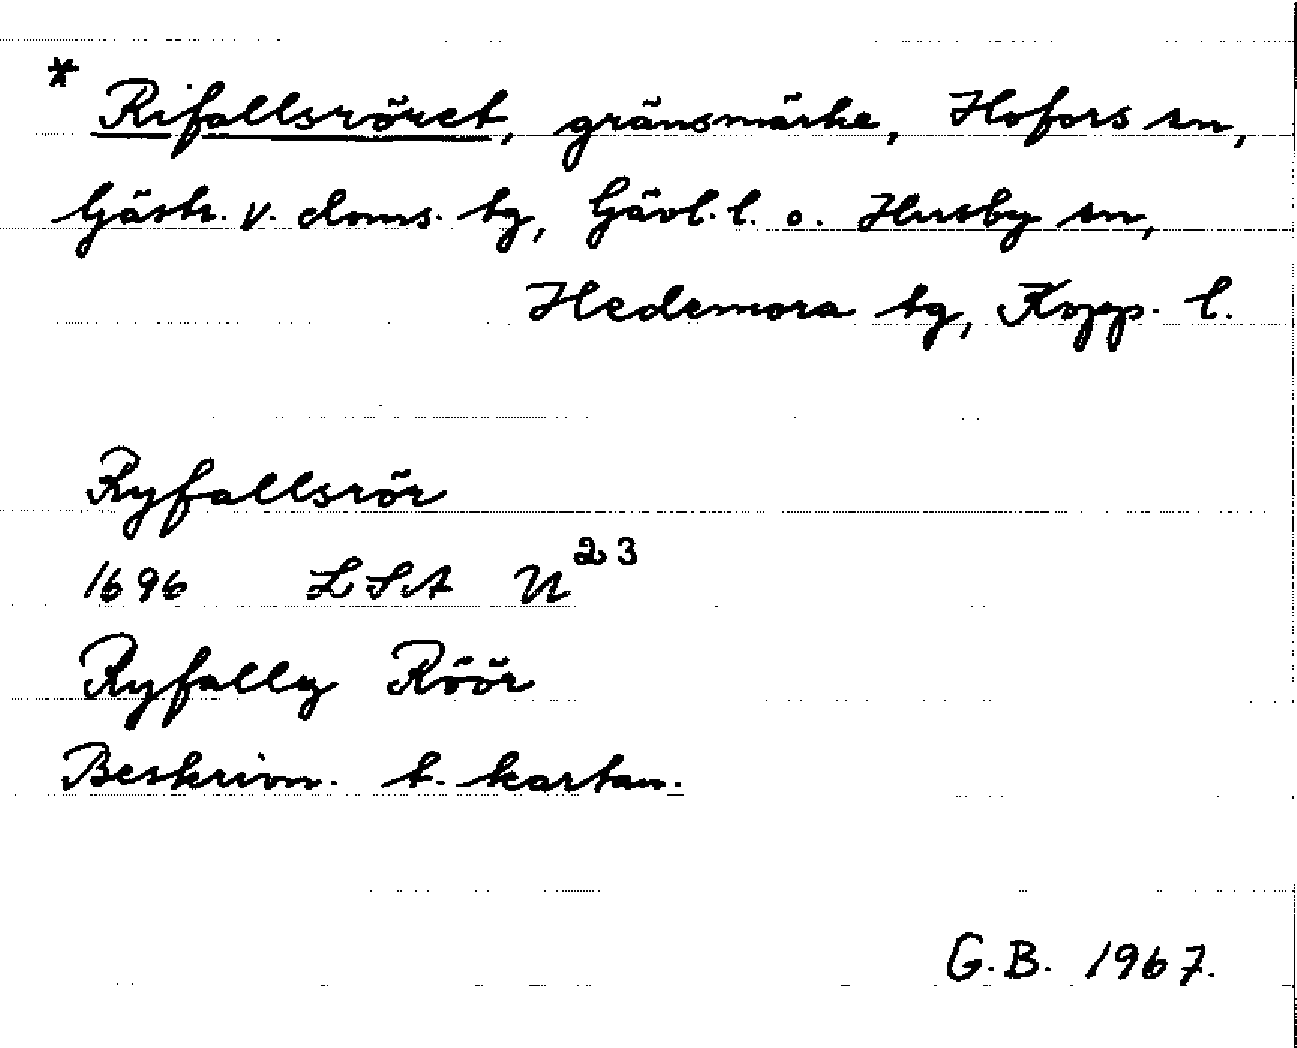 * Rifallsröret, gränsmärke, Hofors sn,
Gästr. v. doms. tg, Gävl. l. o. Husby sn,
Hedemora tg, Kopp. l.
Ryfallsrör
1696 LSA U 23
Ryfallz Röör
Beskrivn. t. kartan.
G.B. 1967.